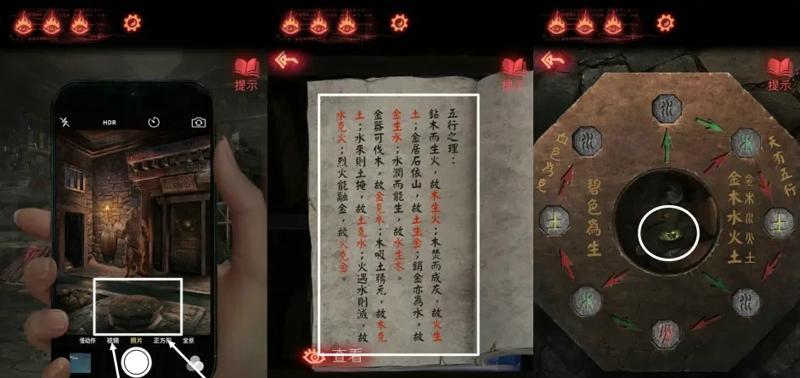 提示
HDR
慢动作
视频
照片
正方形
全景
提示
五行之理：
鉆木而生火，故木生火；木焚而成灰，故火生
土；金居石依山，故土生金；銷金亦為水，故
金生水；水潤而能生，故水生木。
金器可伐木，故金克木；木吸土精元，故木克
土；水來則土掩，故土克水；火遇水則滅，故
水克火；烈火能融金，故火克金。
查看
提示
天有五行
金木水火土
碧色為生
血色為克
土
土